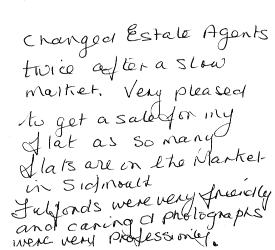 Changed Estate Agents
twice after a slow
market. Very pleased
to get a sale for my
flat as so many
flats are in the Market
in Sidmouth
Fulfords were very friendly
and caring & photographs
were very professional.